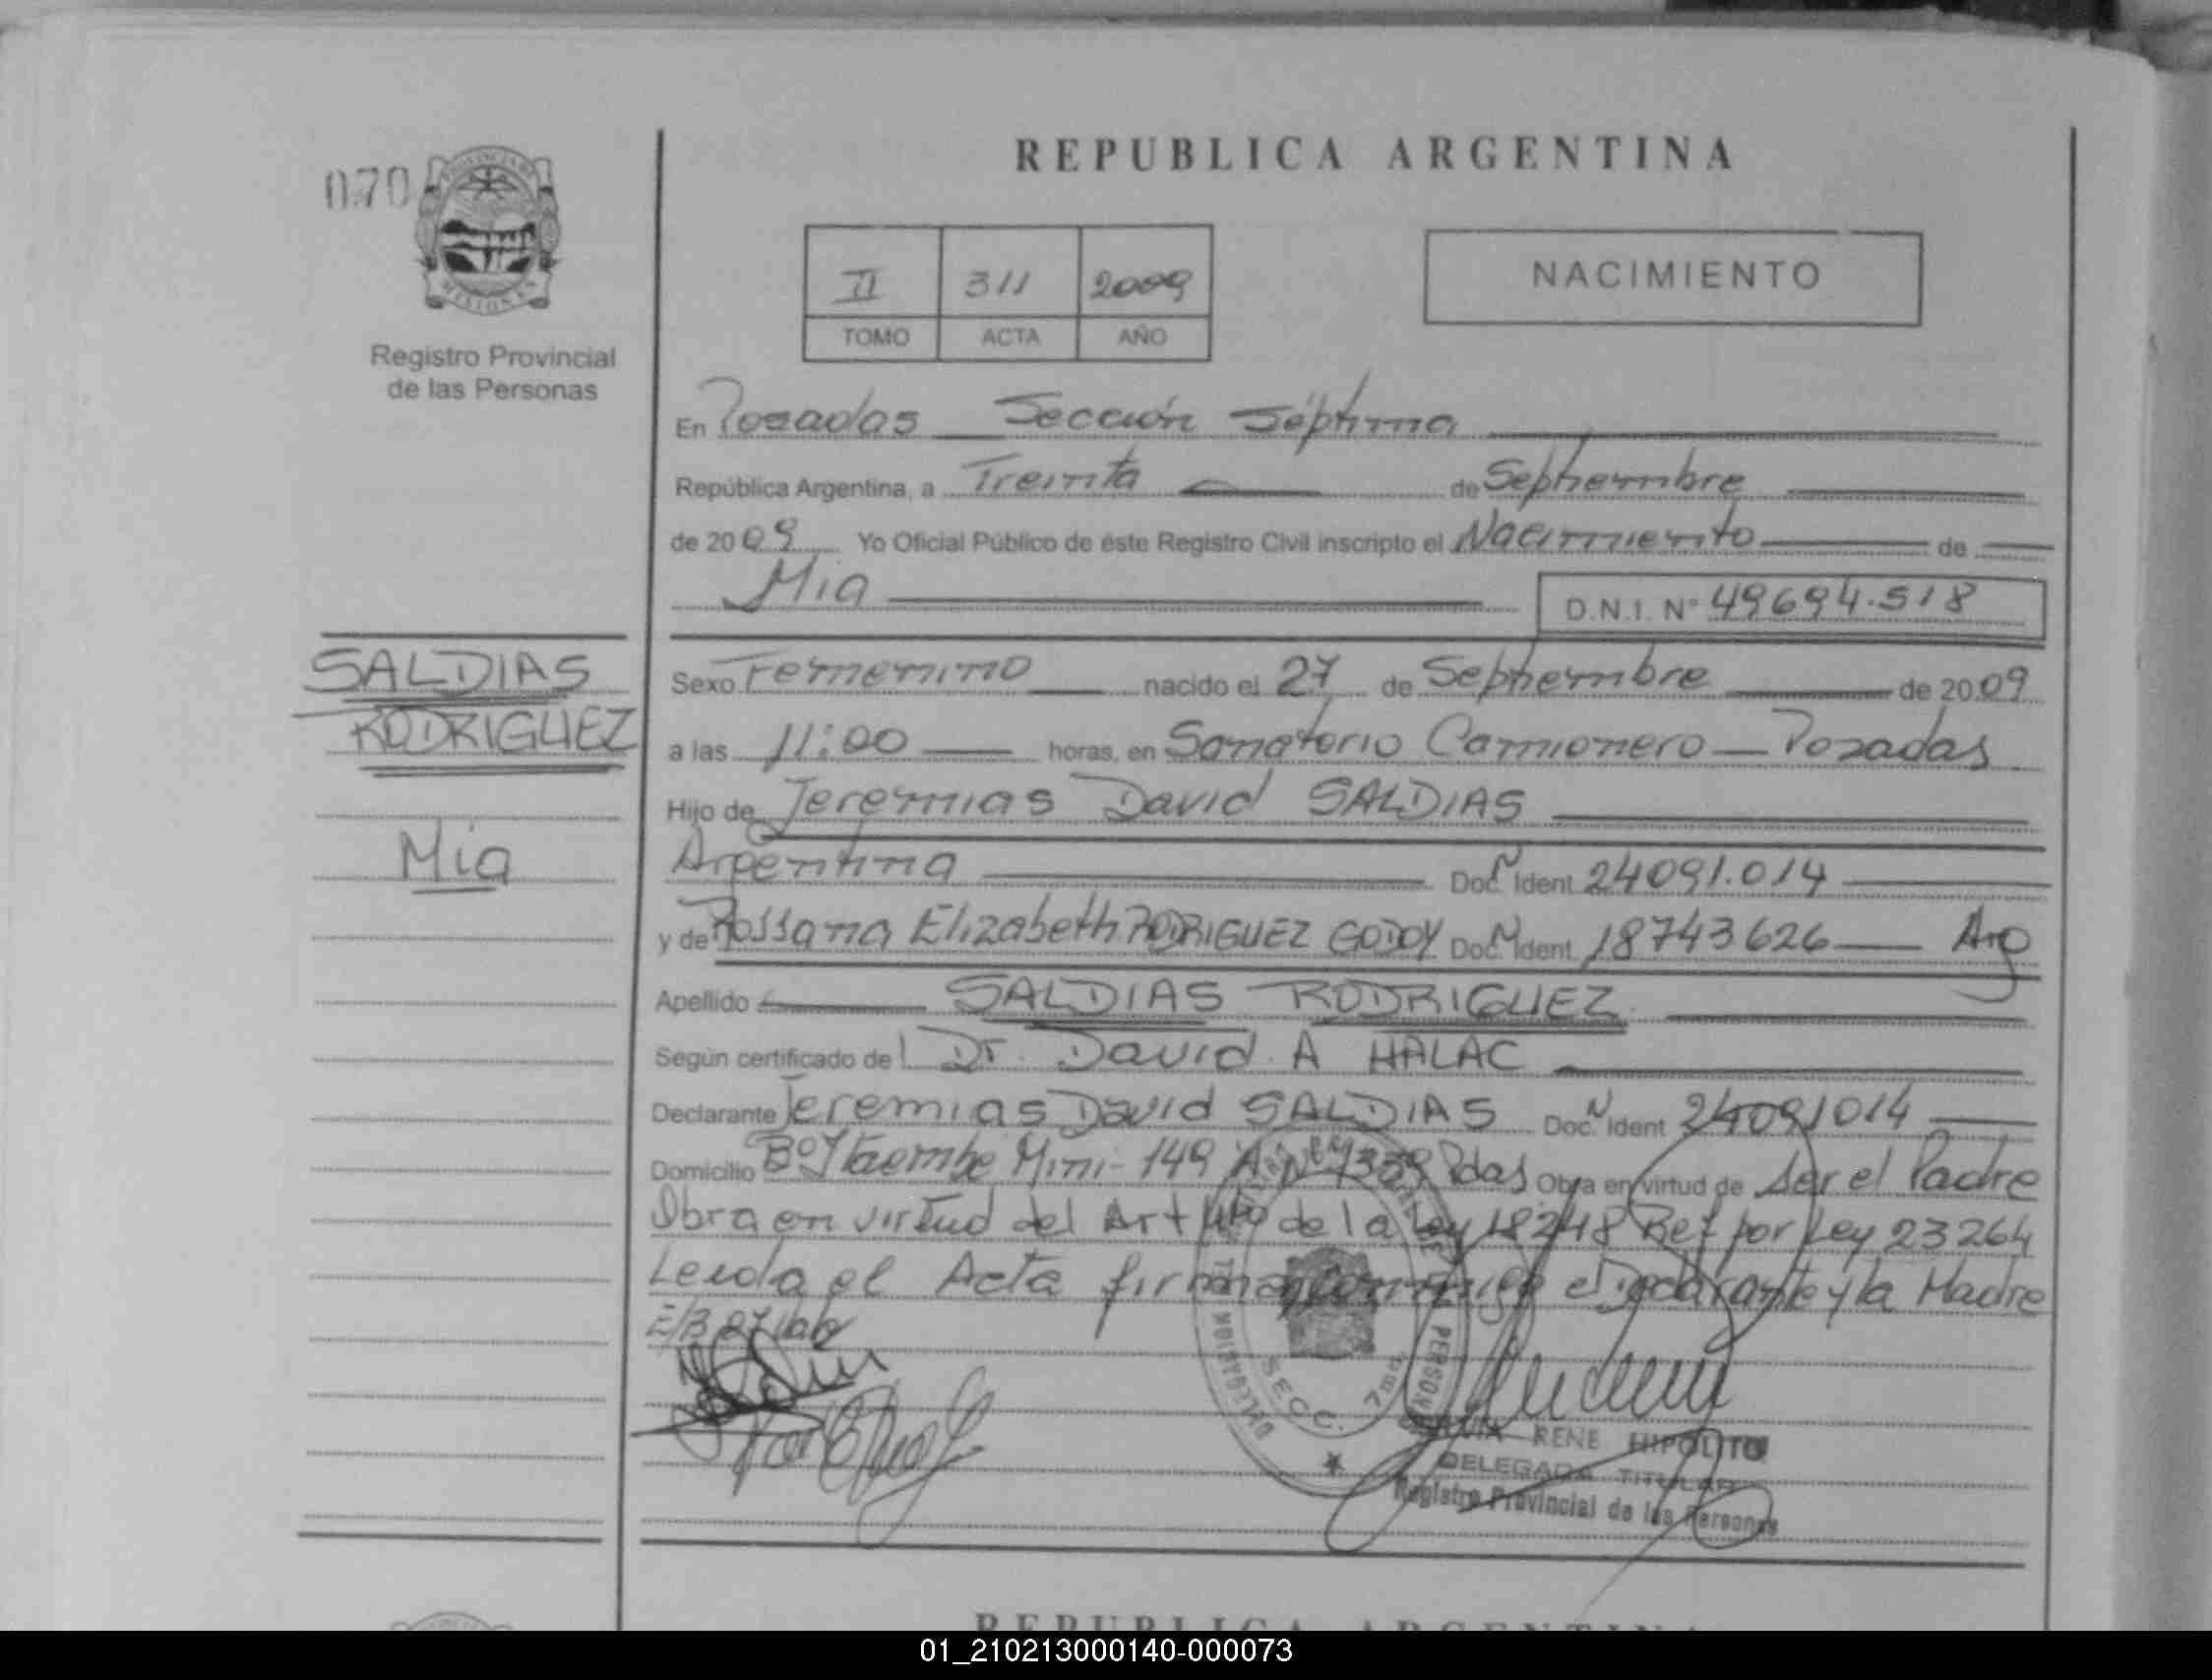 REPUBLICA ARGENTINA
070
PROVINCIA DE
MISIONES
Registro Provincial
de las Personas
II 311 2009
TOMO ACTA AÑO
NACIMIENTO
En Posadas Sección Séptima
República Argentina, a Treinta de Septiembre
de 2009 Yo Oficial Público de éste Registro Civil inscripto el Nacimiento de
Mia D.N.I. N° 49694.518
SALDIAS
RODRIGUEZ
Mia
Sexo Femenino nacido el 27 de Septiembre de 2009
a las 11:00 horas, en Sanatorio Camionero Posadas
Hijo de Jeremias David SALDIAS
Argentina Doc. N Ident 24091.014
y de Rossana Elizabeth RODRIGUEZ GODOY Doc. N Ident. 18743626 Arg
Apellido SALDIAS RODRIGUEZ
Según certificado de Dr. David A HALAC
Declarante Jeremias David SALDIAS Doc. N Ident 24091014
Domicilio B° Itaembe Mini - 149 A N° 1339 Pdas Obra en virtud de Ser el Padre
Obra en virtud del Art de la Ley 18248 Ref por Ley 23264
Leida el Acta firman conmigo el Declarante y la Madre
E/B 27
SECC. 7ma
RENE HIPOLITO
DELEGADA TITULAR
Registro Provincial de las Personas
REPUBLICA ARGENTINA
01_210213000140-000073